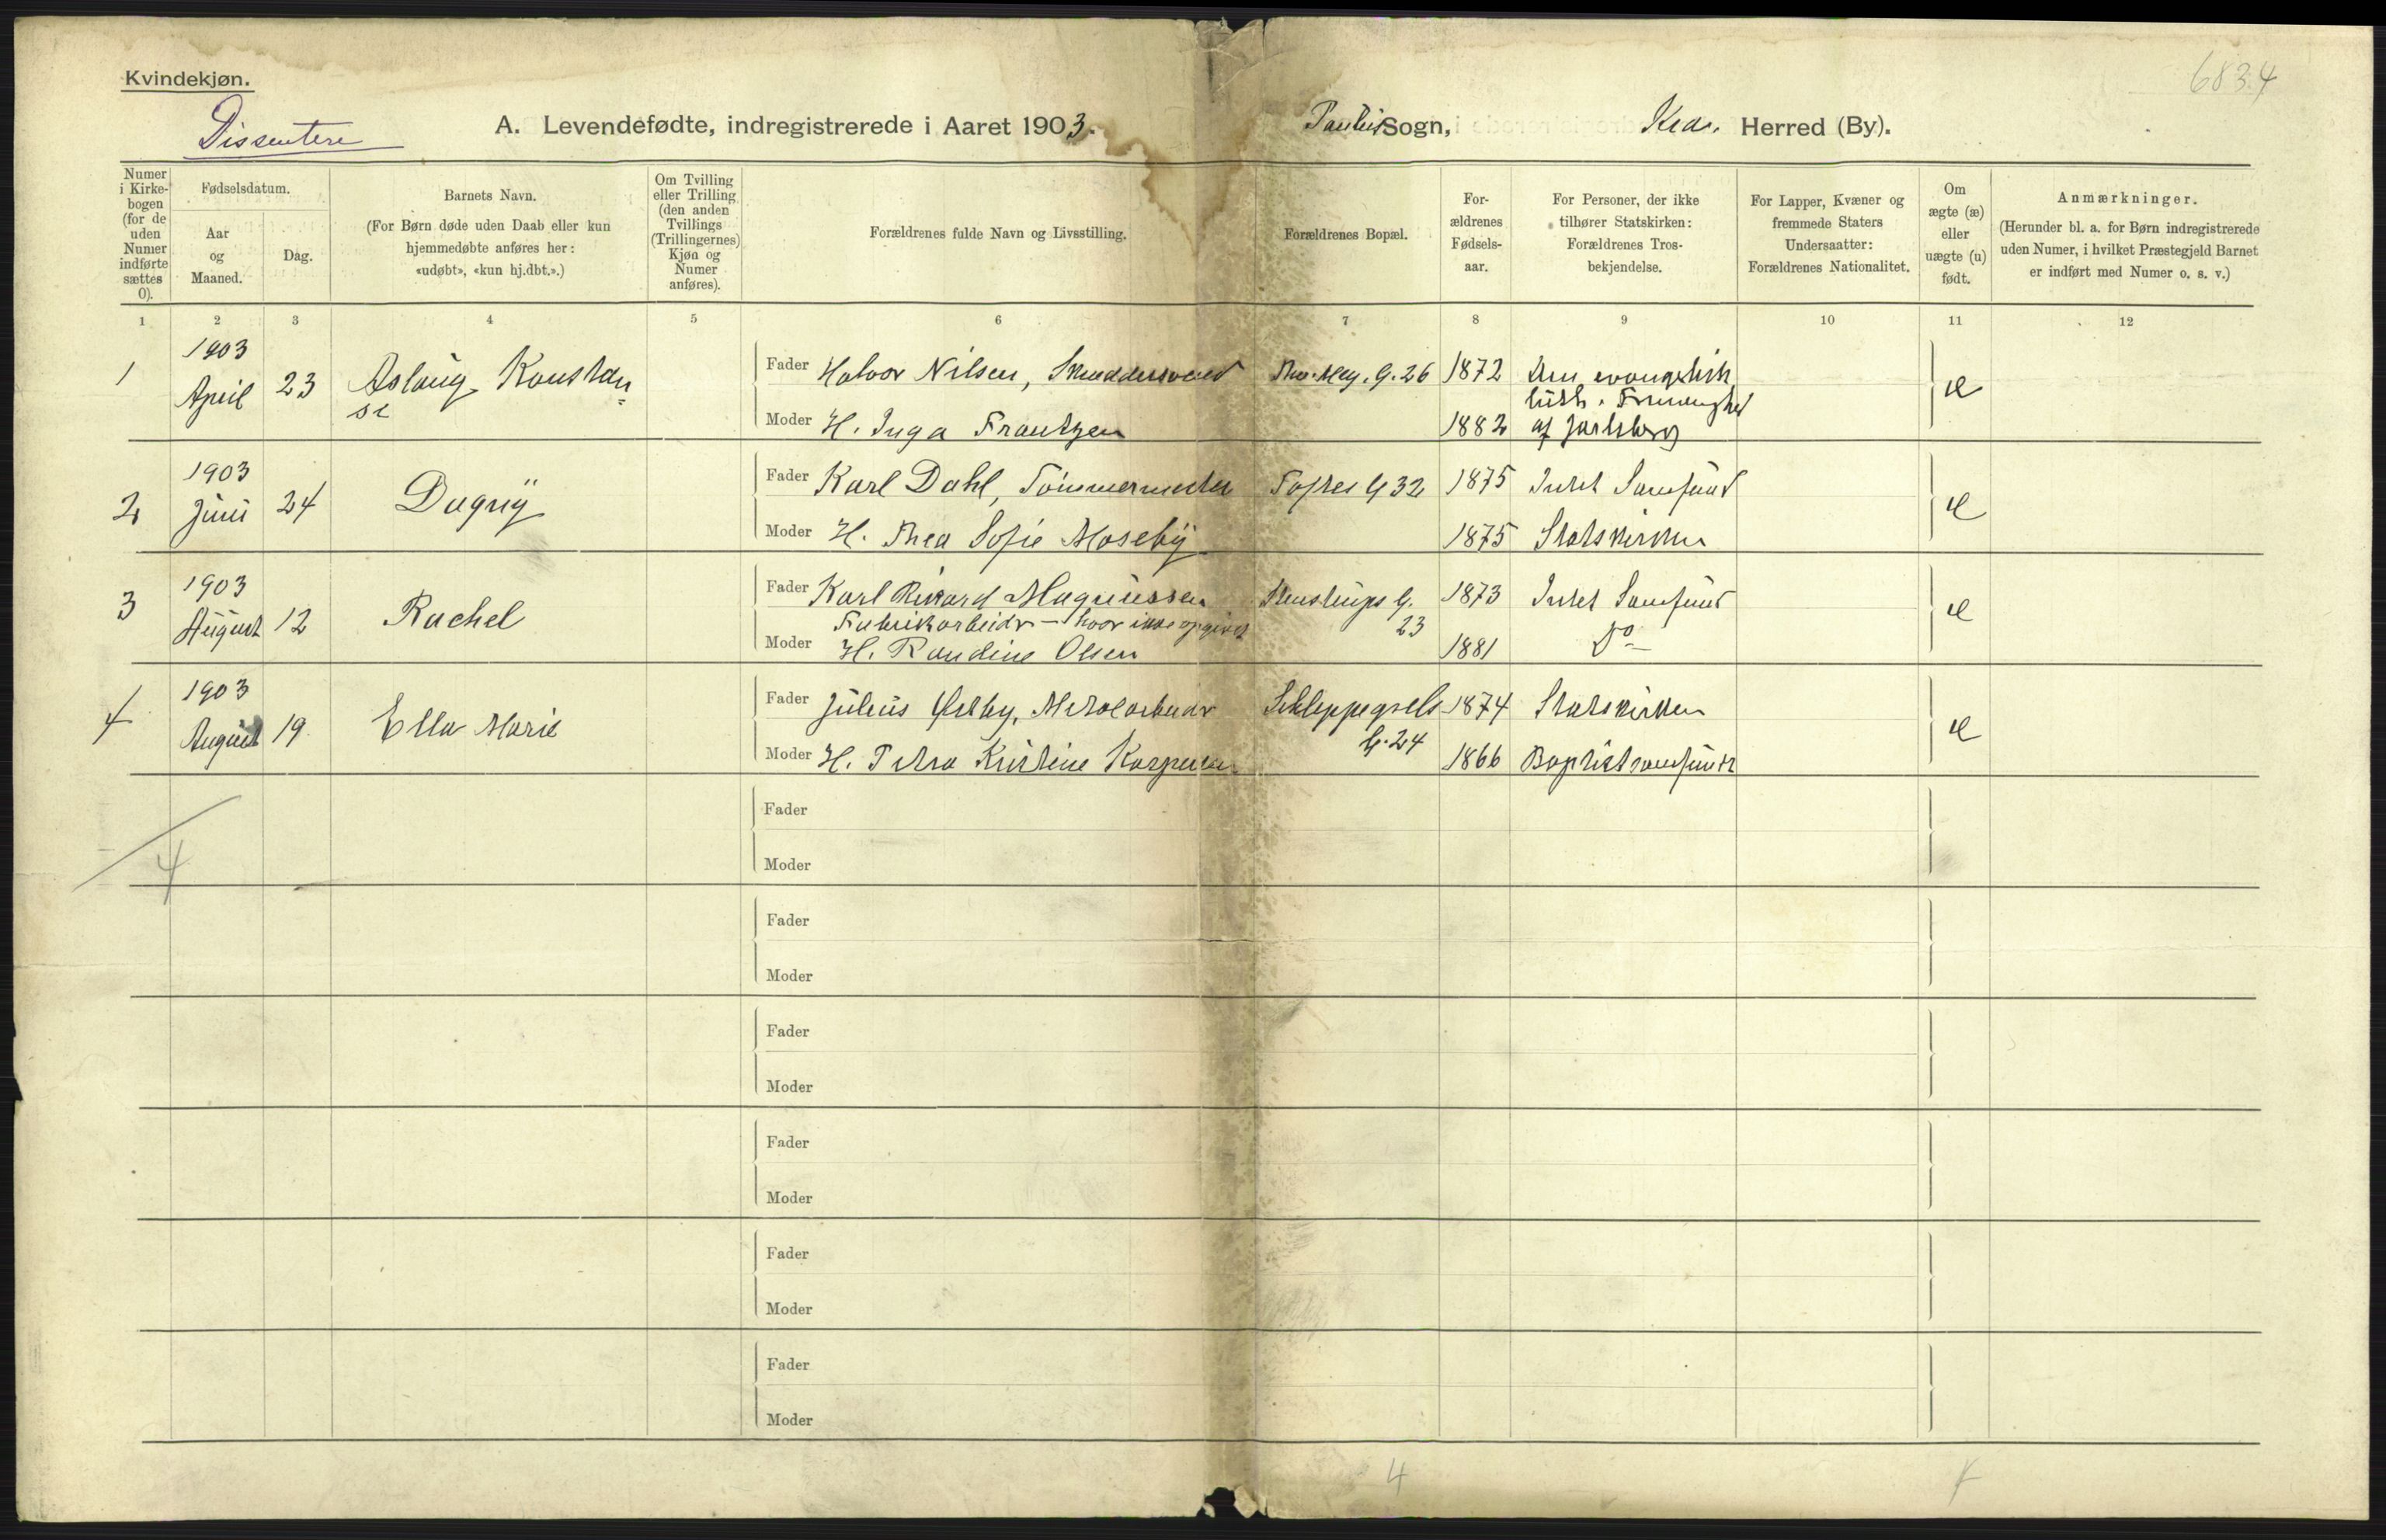 Kvindekjøn.
6834
Dissentere
A. Levendefødte, indregistrerede i Aaret 1903. Paulus Sogn, Kra. Herred (By).
Numer i Kirkebogen (for de uden Numer indførte sættes 0).
Fødselsdatum.
Aar og Maaned.
Dag.
Barnets Navn.
(For Børn døde uden Daab eller kun hjemmedøbte anføres her: «udøbt», «kun hj.dbt.».)
Om Tvilling eller Trilling (den anden Tvillings (Trillingernes) Kjøn og Numer anføres).
Forældrenes fulde Navn og Livsstilling.
Forældrenes Bopæl.
Forældrenes Fødselsaar.
For Personer, der ikke tilhører Statskirken: Forældrenes Trosbekjendelse.
For Lapper, Kvæner og fremmede Staters Undersaatter: Forældrenes Nationalitet.
Om ægte (æ) eller uægte (u) født.
Anmærkninger.
(Herunder bl. a. for Børn indregistrerede uden Numer, i hvilket Præstegjeld Barnet er indført med Numer o. s. v.)
1 2 3 4 5 6 7 8 9 10 11 12
1 1903 April 23 Aslaug Konstanse
Fader Halvor Nilsen, Skuddersvend Tho. Mey. G. 26 1872 Den evangelisk luth. Frimenighed af Jarlsberg æ
Moder H. Inga Frantzen 1882
2 1903 Juni 24 Dagny
Fader Karl Dahl, Tømmermester Toftes G 32 1875 Intet Samfund æ
Moder H. Thea Sofie Moseby 1875 Statskirken
3 1903 August 12 Rachel
Fader Karl Rikard Magnussen Stenstrups G. 23 1873 Intet Samfund æ
Fabrikarbeider – hvor ikke opgivet
Moder H. Randine Olsen 1881 Do
4 1903 August 19 Ella Marie
Fader Julius Østby, Metalarbeider Schleppegrels G. 24 1874 Statskirken æ
Moder H. Petra Kristine Kaspersen 1866 Baptistsamfundet
Fader
4
Moder
Fader
Moder
Fader
Moder
Fader
Moder
Fader
Moder
Fader
Moder
4